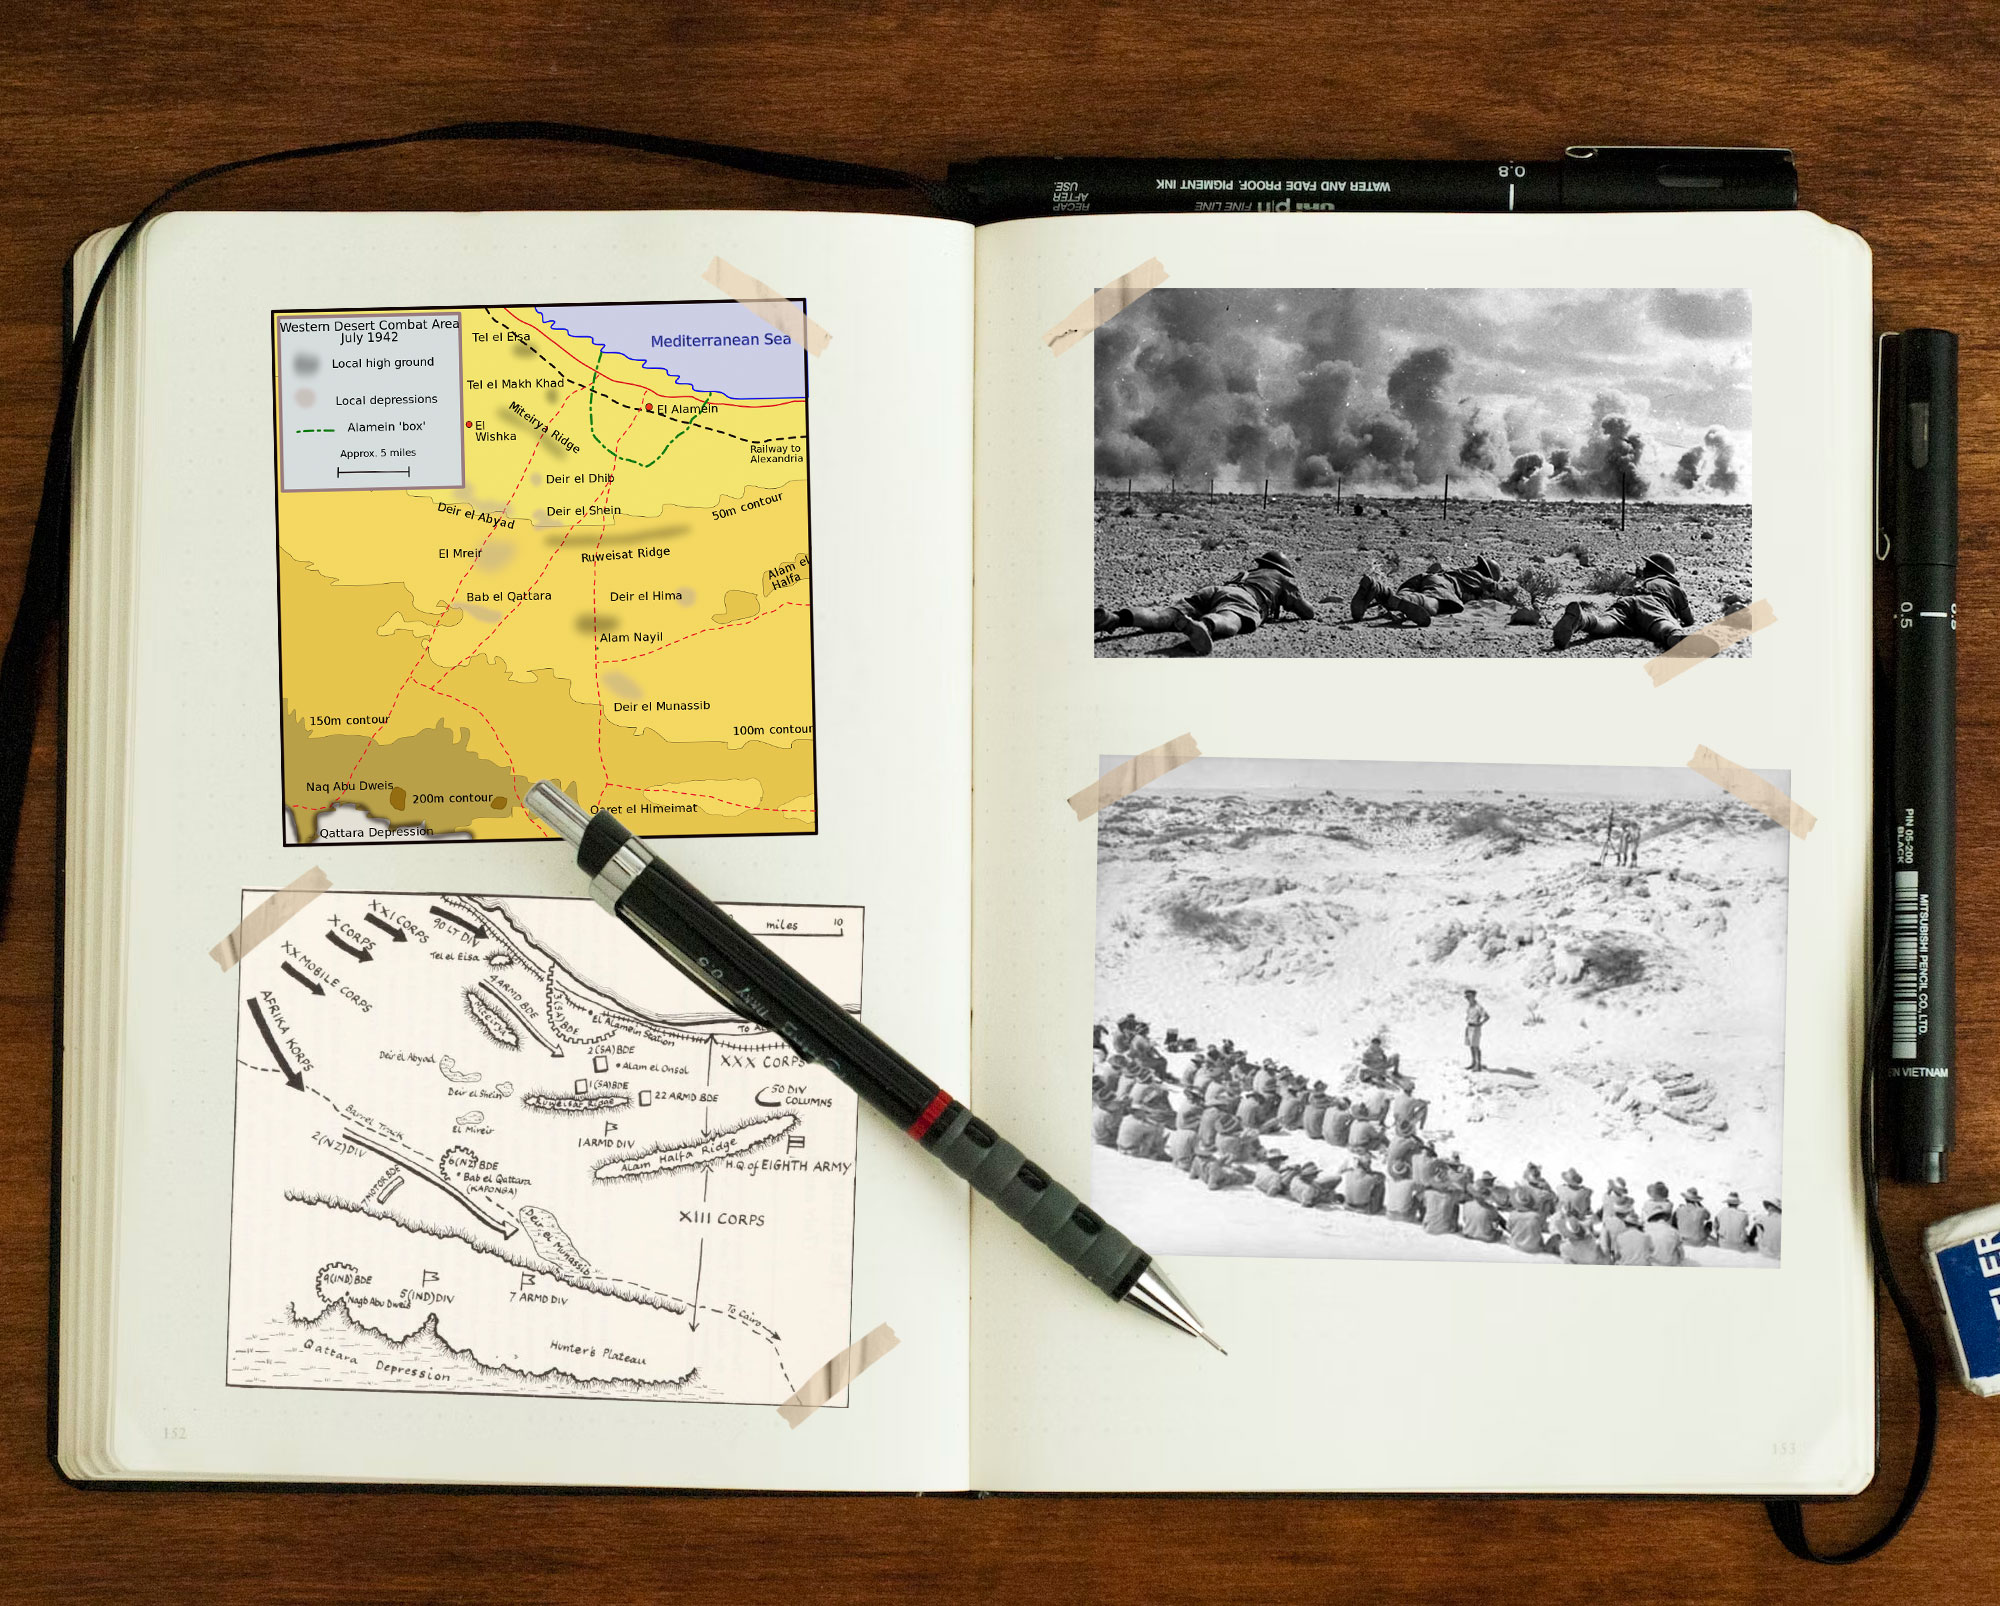 WATER AND FADE PROOF, PIGMENT INK
0.8
RECAP
AFTER
USE.
uni pin FINE LINE
Western Desert Combat Area
July 1942
Local high ground
Local depressions
Alamein 'box'
Approx. 5 miles
Mediterranean Sea
Tel el Eisa
Tel el Makh Khad
El Alamein
Miteirya Ridge
El
Wishka
Railway to
Alexandria
Deir el Dhib
50m contour
Deir el Abyad
Deir el Shein
El Mreir
Ruweisat Ridge
Alam el
Halfa
Bab el Qattara
Deir el Hima
Alam Nayil
Deir el Munassib
150m contour
100m contour
Naq Abu Dweis
200m contour
Qaret el Himeimat
Qattara Depression
XXI CORPS
90 LT DIV
X CORPS
XX MOBILE CORPS
AFRIKA KORPS
miles
10
Tel el Eisa
4 ARMD BDE
Miteirya
3(SA)BDE
El Alamein Station
2(SA)BDE
Alam el Onsol
XXX CORPS
Deir el Abyad
Deir el Shein
1(SA)BDE
22 ARMD BDE
50 DIV
COLUMNS
Ruweisat Ridge
El Mireir
1 ARMD DIV
Alam Halfa Ridge
H.Q of EIGHTH ARMY
Barrel Track
2(NZ)DIV
6(NZ)BDE
Bab el Qattara
(KAPONGA)
7 MOTOR BDE
XIII CORPS
Deir
el Munassib
9(IND)BDE
Naqb Abu Dweis
5(IND)DIV
7 ARMD DIV
To Cairo
Hunter's Plateau
Qattara Depression
0.5
PIN 05-200
BLACK
MITSUBISHI PENCIL CO., LTD.
VIETNAM
152
153